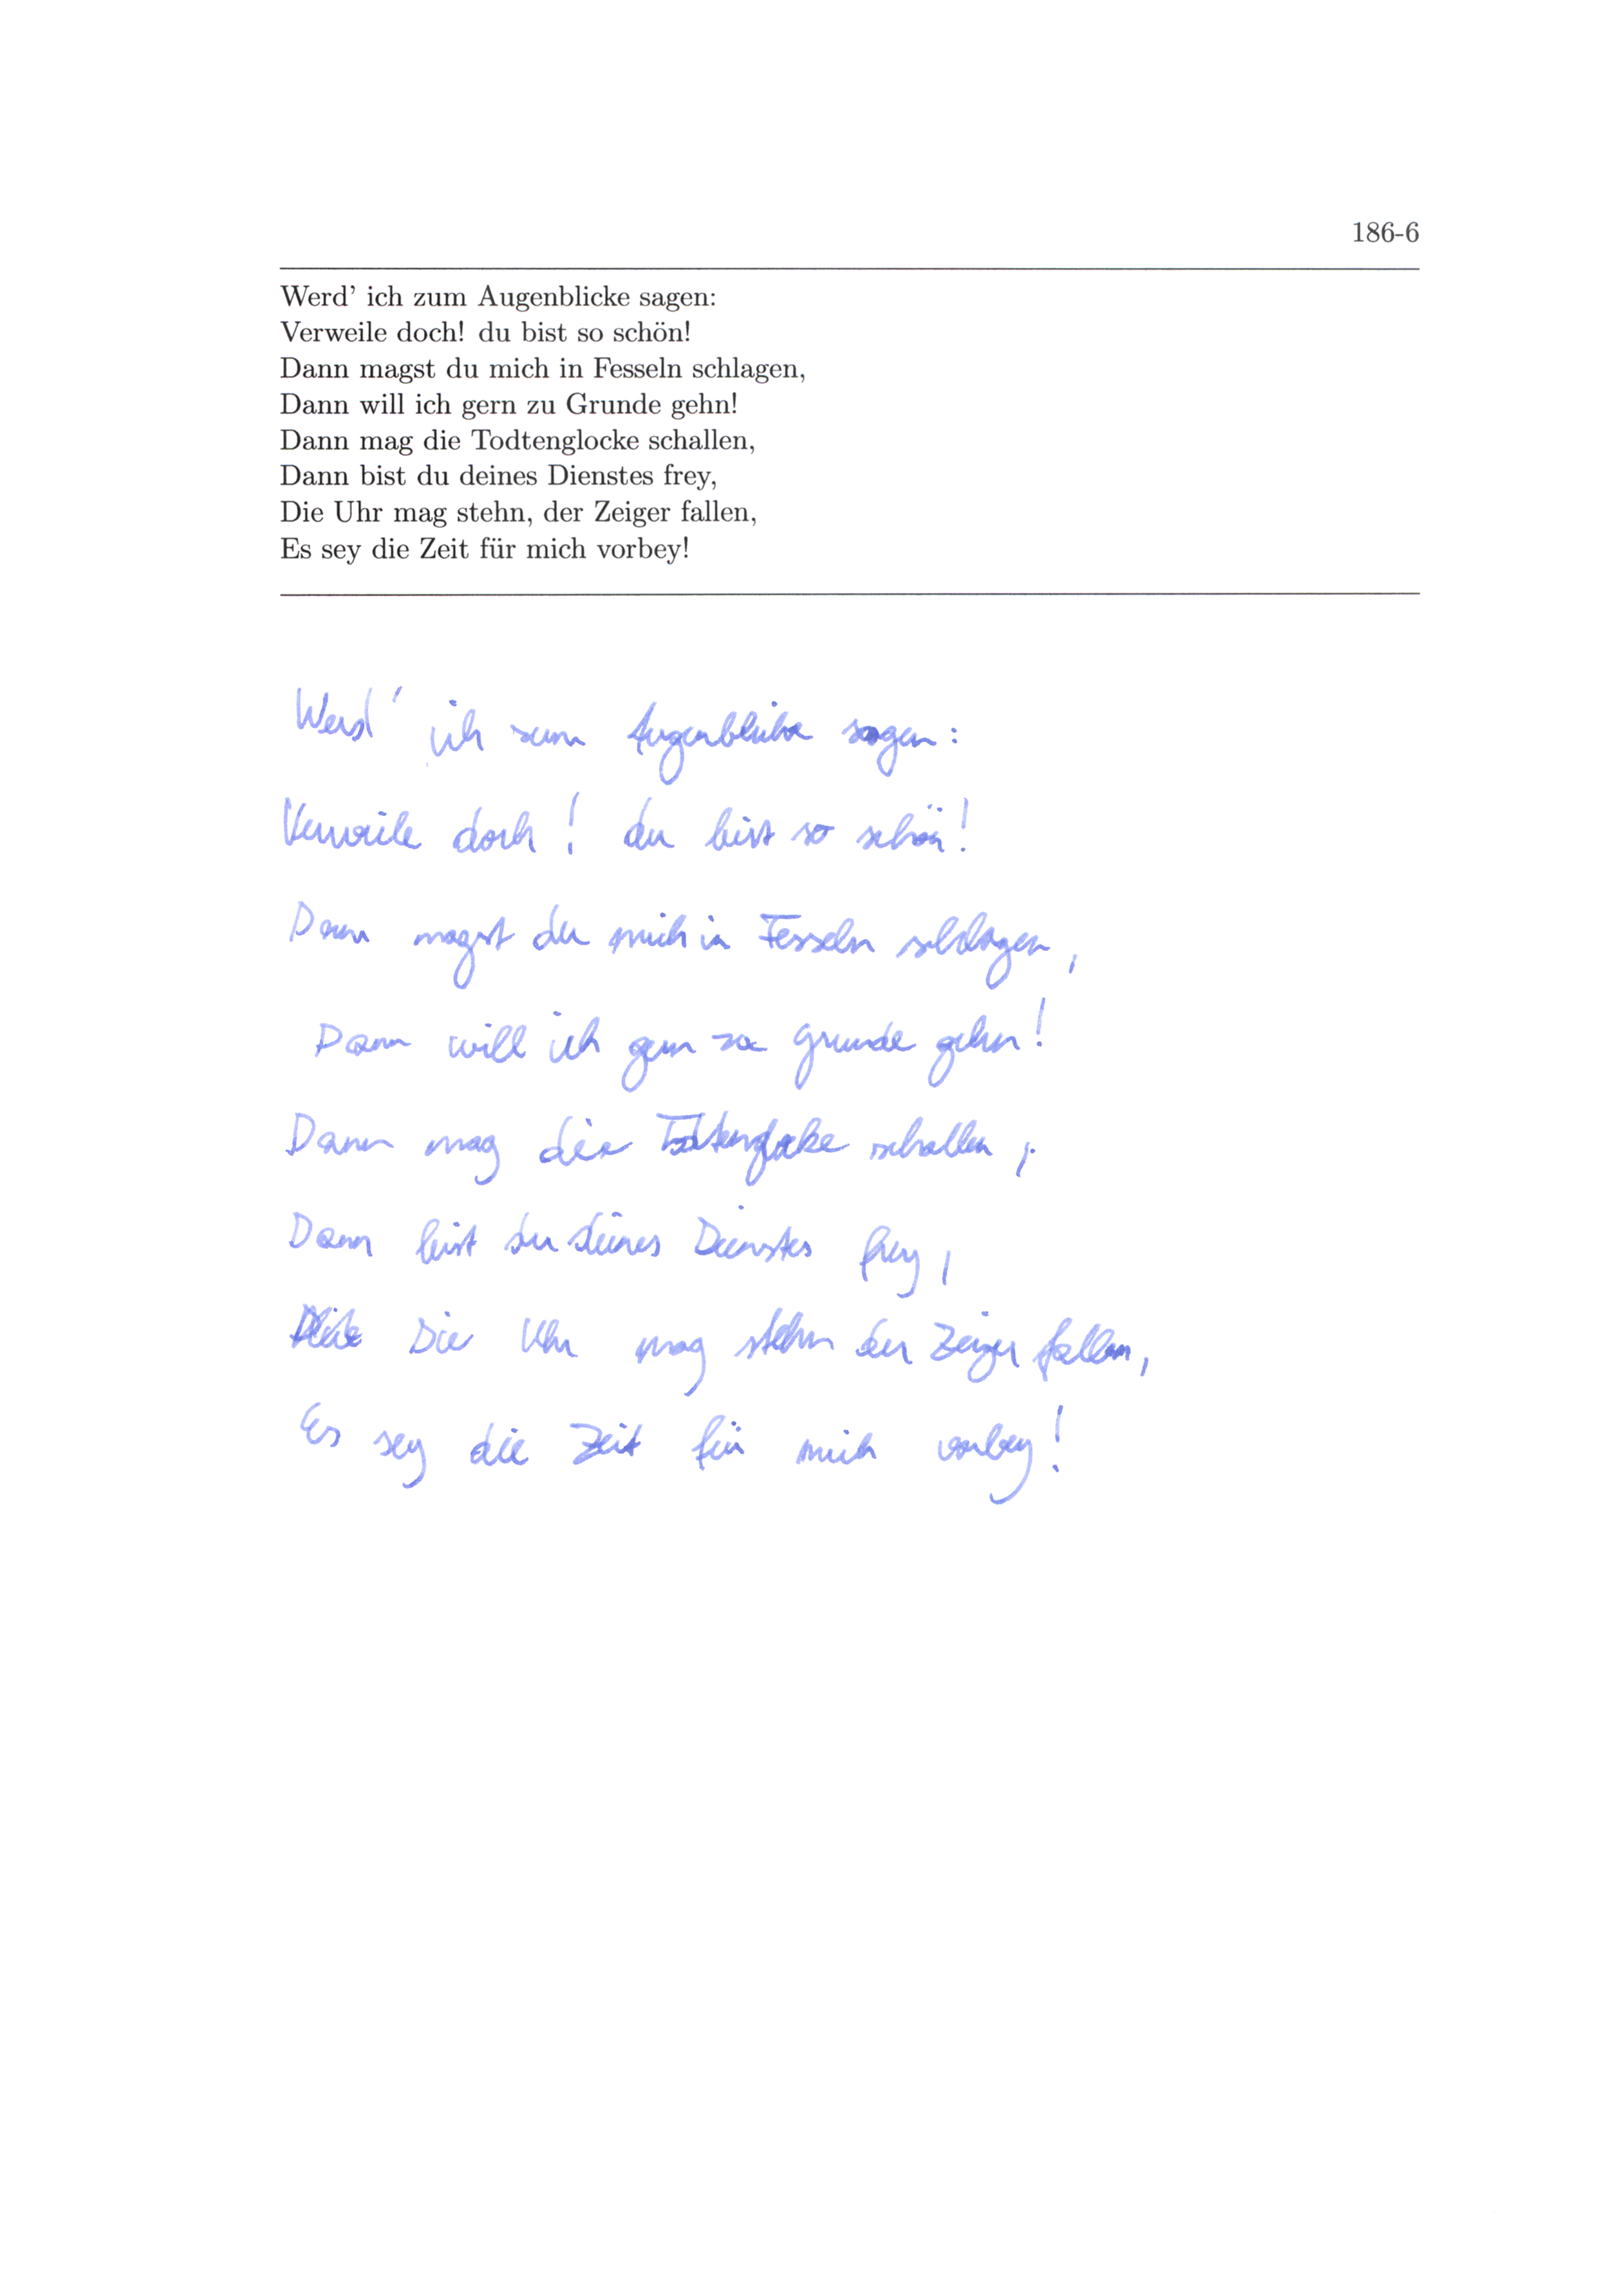 186-6
Werd' ich zum Augenblicke sagen:
Verweile doch! du bist so schön!
Dann magst du mich in Fesseln schlagen,
Dann will ich gern zu Grunde gehn!
Dann mag die Todtenglocke schallen,
Dann bist du deines Dienstes frey,
Die Uhr mag stehn, der Zeiger fallen,
Es sey die Zeit für mich vorbey!
Werd' ich zum Augenblicke sagen:
Verweile doch! du bist so schön!
Dann magst du mich in Fesseln schlagen,
Dann will ich gern zu Grunde gehn!
Dann mag die Todtenglocke schallen,
Dann bist du deines Dienstes frey,
Die Uhr mag stehn der Zeiger fallen,
Es sey die Zeit für mich vorbey!